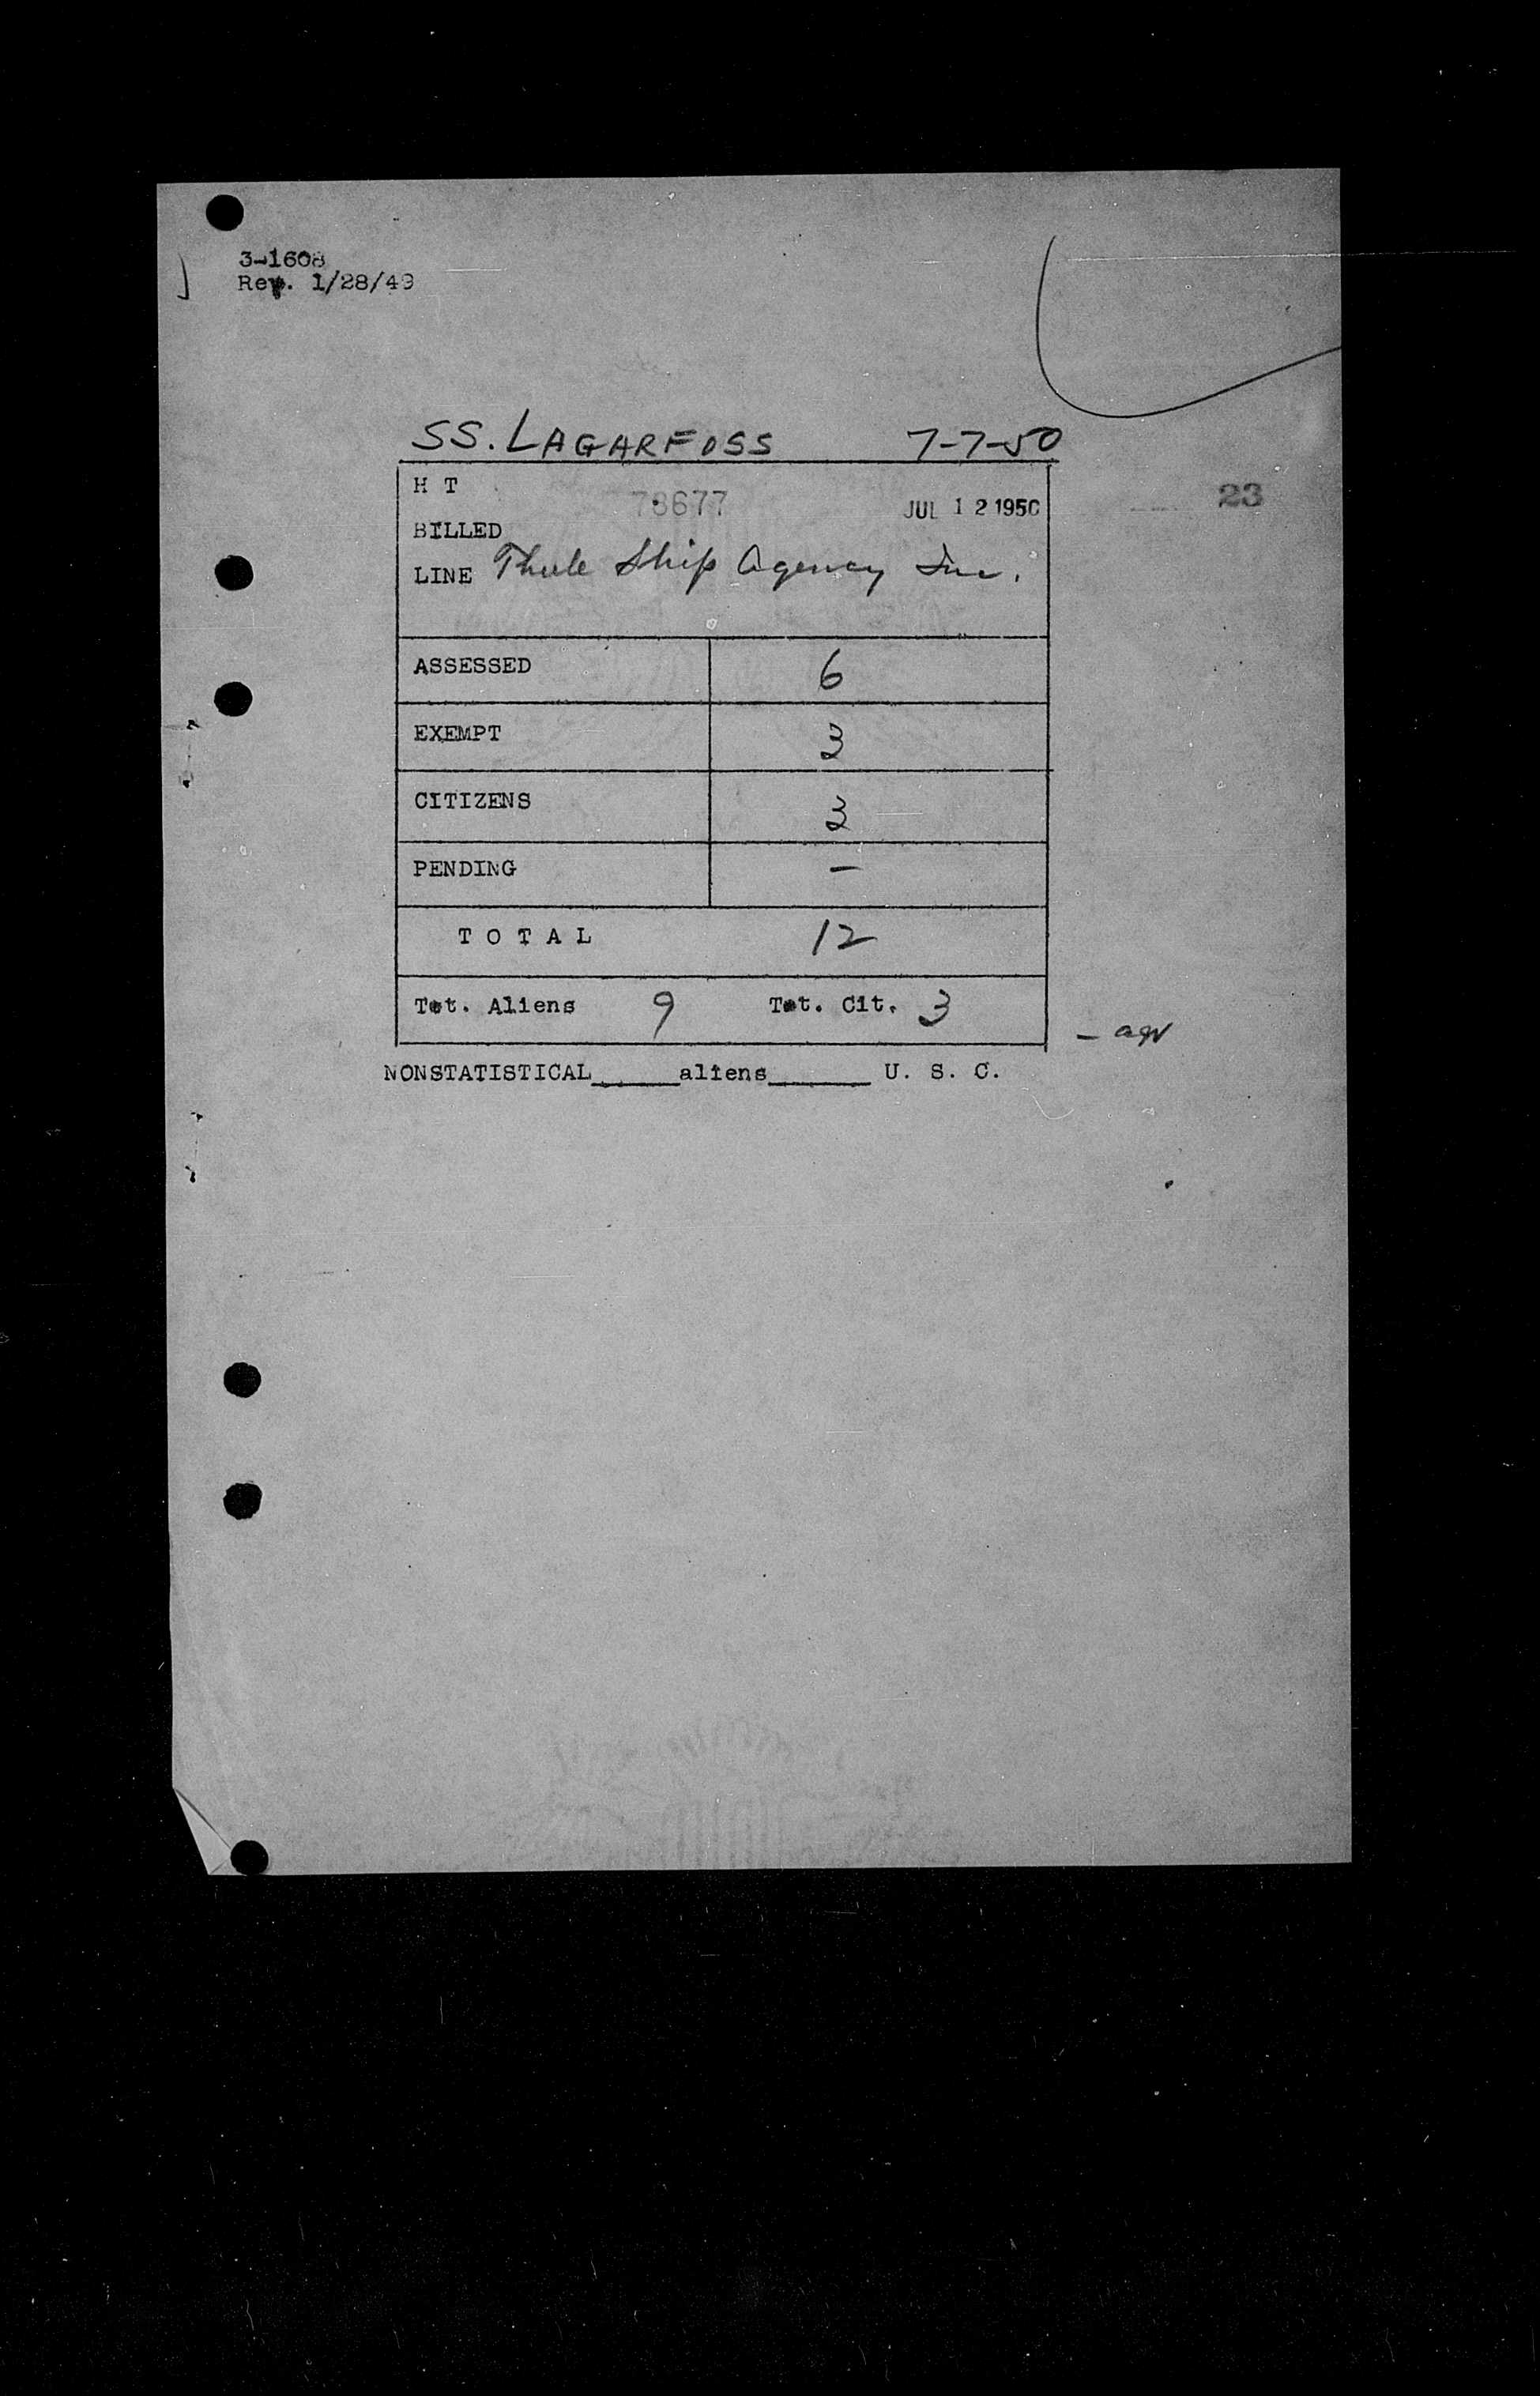 3-1608
Rev. 1/28/49
SS. LAGARFOSS 7-7-50
H T
78677 JUL 12 1950 23
BILLED
LINE Thule Ship Agency Inc.
ASSESSED 6
EXEMPT 3
CITIZENS 3
PENDING –
T O T A L 12
Tot. Aliens 9 Tot. Cit. 3
NONSTATISTICAL______aliens_______ U. S. C.